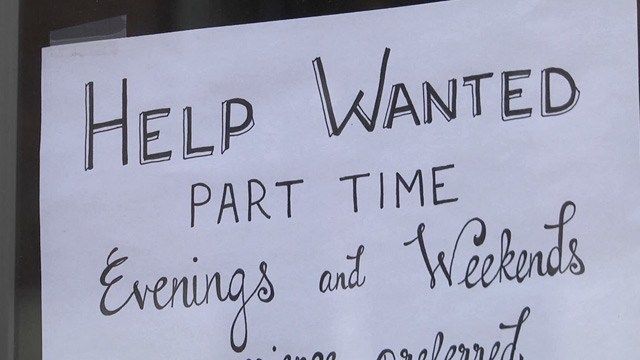 HELP WANTED
PART TIME
Evenings and Weekends
preferred